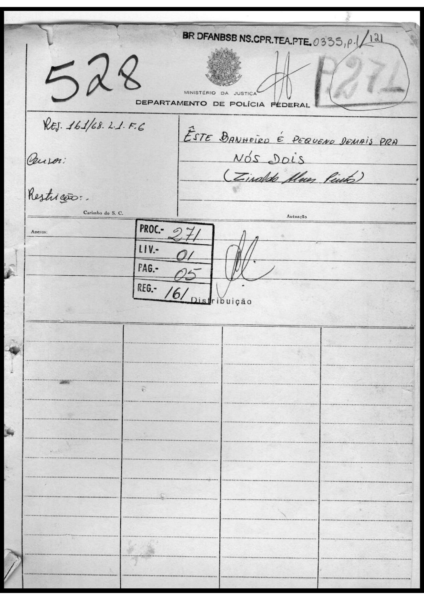 BR DFANBSB NS.CPR.TEA.PTE. 0335, p.1/121
528
P.271
MINISTÉRIO DA JUSTIÇA
DEPARTAMENTO DE POLÍCIA FEDERAL
REG. 161/68. L.1. F.6
Censor:
Restrição:.
Carimbo do S. C.
ÊSTE BANHEIRO É PEQUENO DEMAIS PRA
NÓS DOIS
(Ziraldo Alves Pinto)
Autuação
Anexo:
PROC.- 271
LIV.- 01
PAG.- 05
REG.- 161
Distribuição